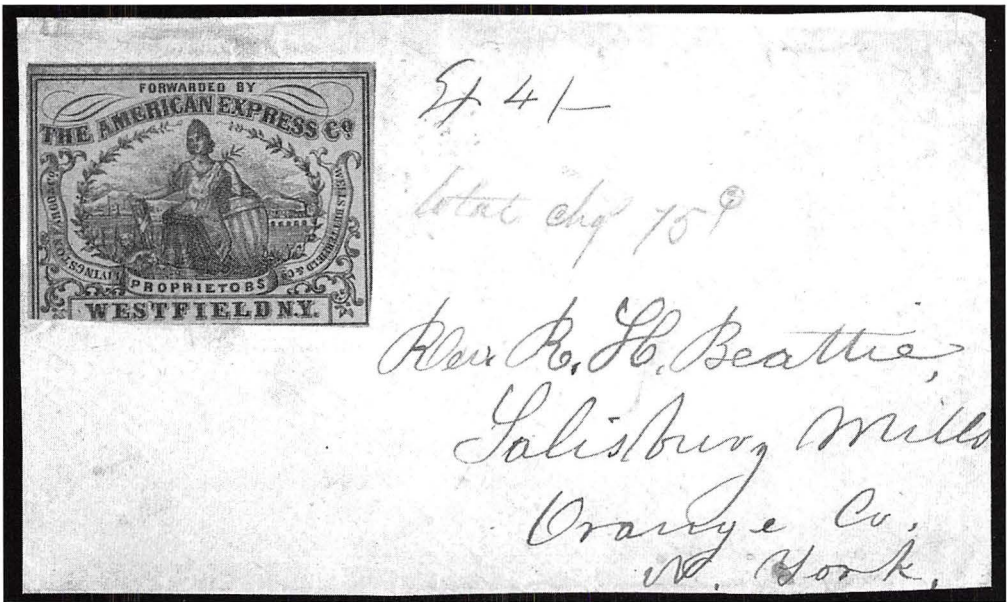 FORWARDED BY
THE AMERICAN EXPRESS Co.
LIVINGSTON FARGO & Co.
WELLS BUTTERFIELD & Co.
PROPRIETORS
WESTFIELD N.Y.
4/-
total chg 75¢
Rev R. H. Beattie,
Salisbury Mills
Orange Co.
N. York.